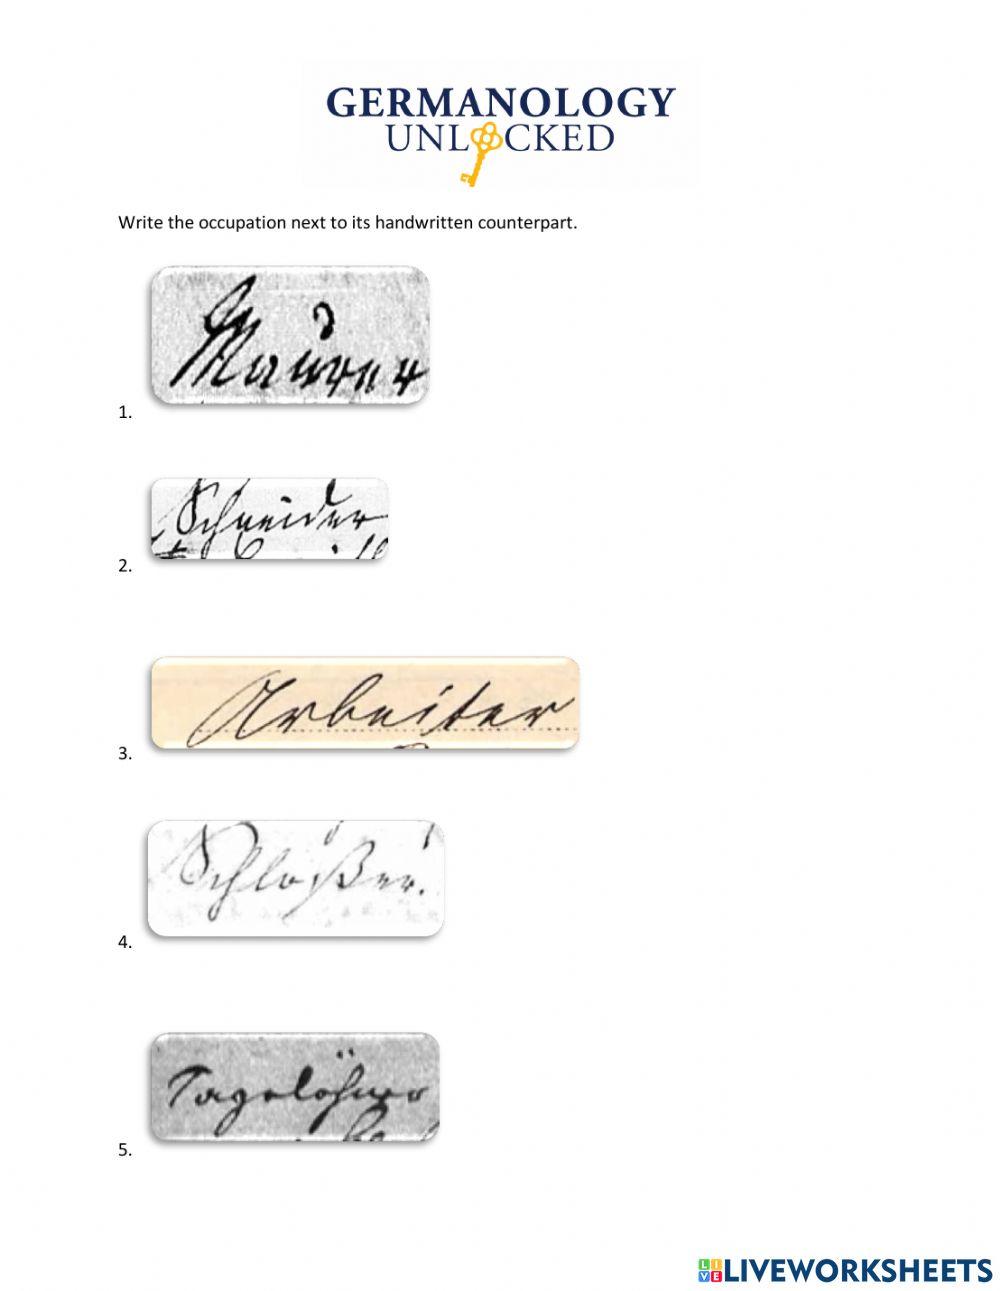 GERMANOLOGY
UNLOCKED
Write the occupation next to its handwritten counterpart.
Maurer
1.
Schneider
2.
Arbeiter
3.
Schloßer.
4.
Tagelöhner
5.
LIVE LIVEWORKSHEETS